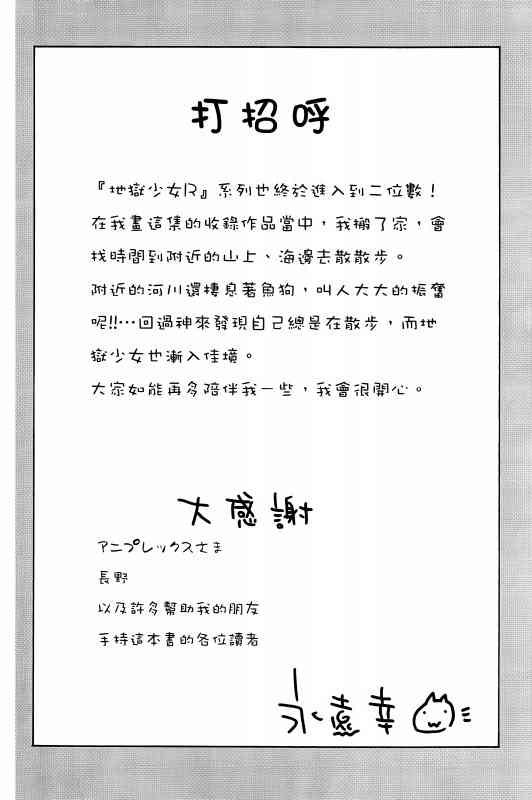 打招呼
『地獄少女R』系列也終於進入到二位數！
在我畫這集的收錄作品當中，我搬了家，會
找時間到附近的山上、海邊去散散步。
附近的河川還棲息著魚狗，叫人大大的振奮
呢!!…回過神來發現自己總是在散步，而地
獄少女也漸入佳境。
大家如能再多陪伴我一些，我會很開心。
大感謝
アニプレックスさま
長野
以及許多幫助我的朋友
手持這本書的各位讀者
永遠幸